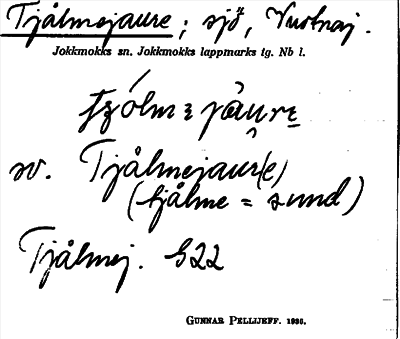 Tjålmejaure; sjö, Vuotnaj.
Jokkmokks sn. Jokkmokks lappmarks tg. Nb l.
sv. Tjålmejaur(e)
(tjålme = sund)
Tjålmej. G22
GUNNAR PELLIJEFF. 1936.